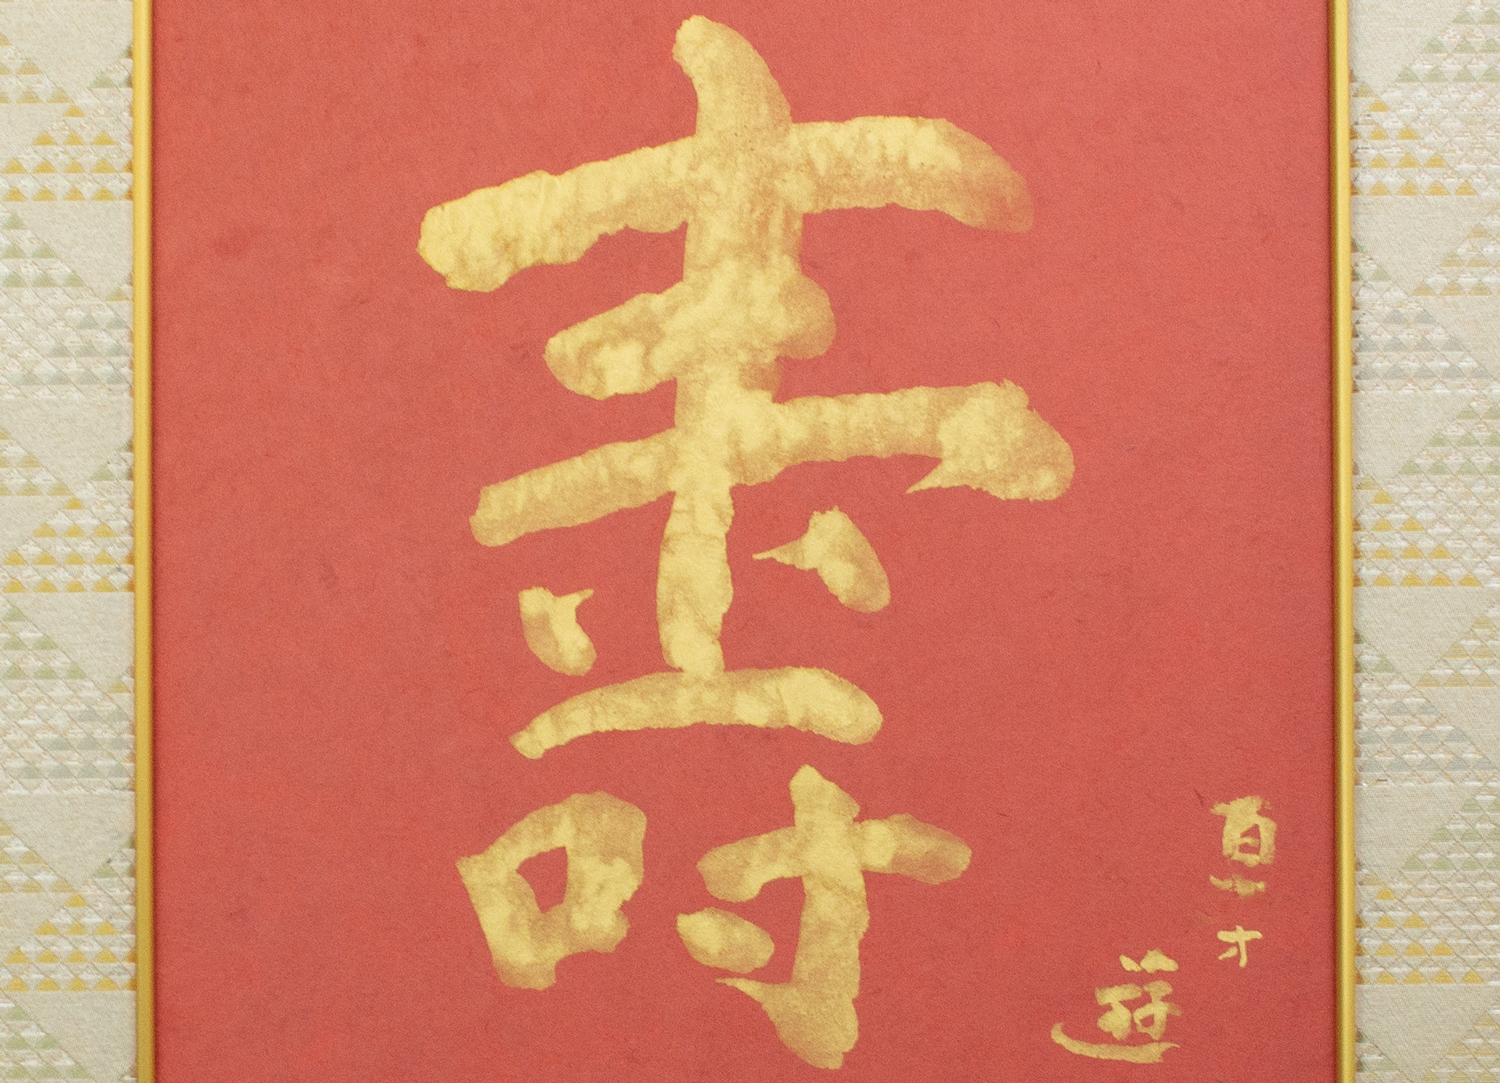 壽
百 才
遊